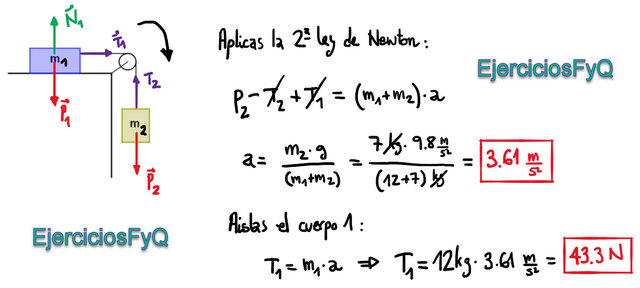 N⃗₁
T⃗₁
m₁
T₂
P⃗₁
m₂
P⃗₂
EjerciciosFyQ
Aplicas la 2ª ley de Newton:
EjerciciosFyQ
P₂ - T₂ + T₁ = (m₁+m₂)·a
a = m₂·g / (m₁+m₂) = 7 kg · 9.8 m/s² / (12+7) kg = 3.61 m/s²
Aislas el cuerpo 1:
T₁ = m₁·a ⇒ T₁ = 12kg · 3.61 m/s² = 43.3 N